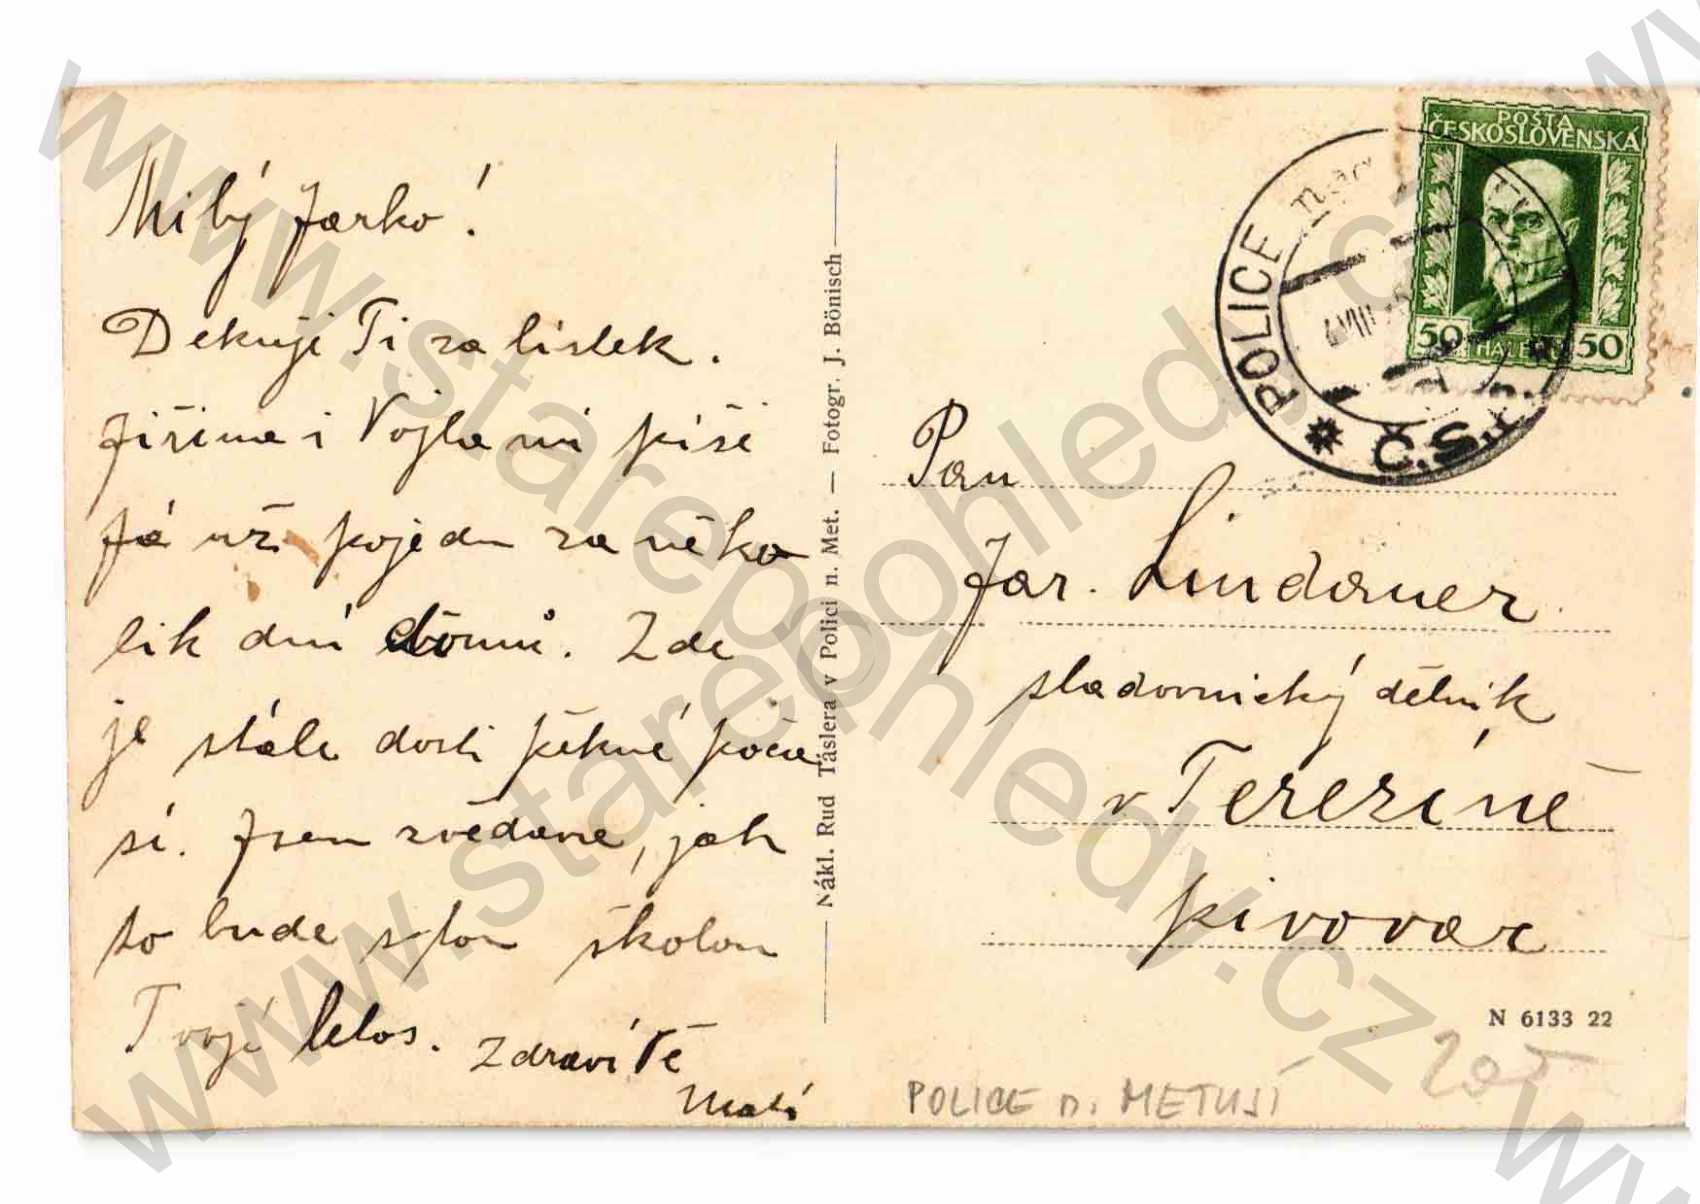 Milý Jarko!
Dekuji Ti za lístek.
Jiřina i Vojta mi píší
Já už pojedu za něko
lik dní domů. Zde
je stále dosti pěkné poča
sí. Jsem zvědavá, jak
to bude s tou školou
Tvojí letos. Zdraví Tě
Nákl. Rud Táslera v Polici n. Met. — Fotogr. J. Bönisch
POŠTA
ČESKOSLOVENSKÁ
50 HALÉŘŮ 50
POLICE
Č.S.R.
Pan
Jar. Lindauer
sladovnický dělník
v Terezíně
pivovar
N 6133 22
POLICE n. METUJÍ
www.starepohledy.cz
www.starepohledy.cz